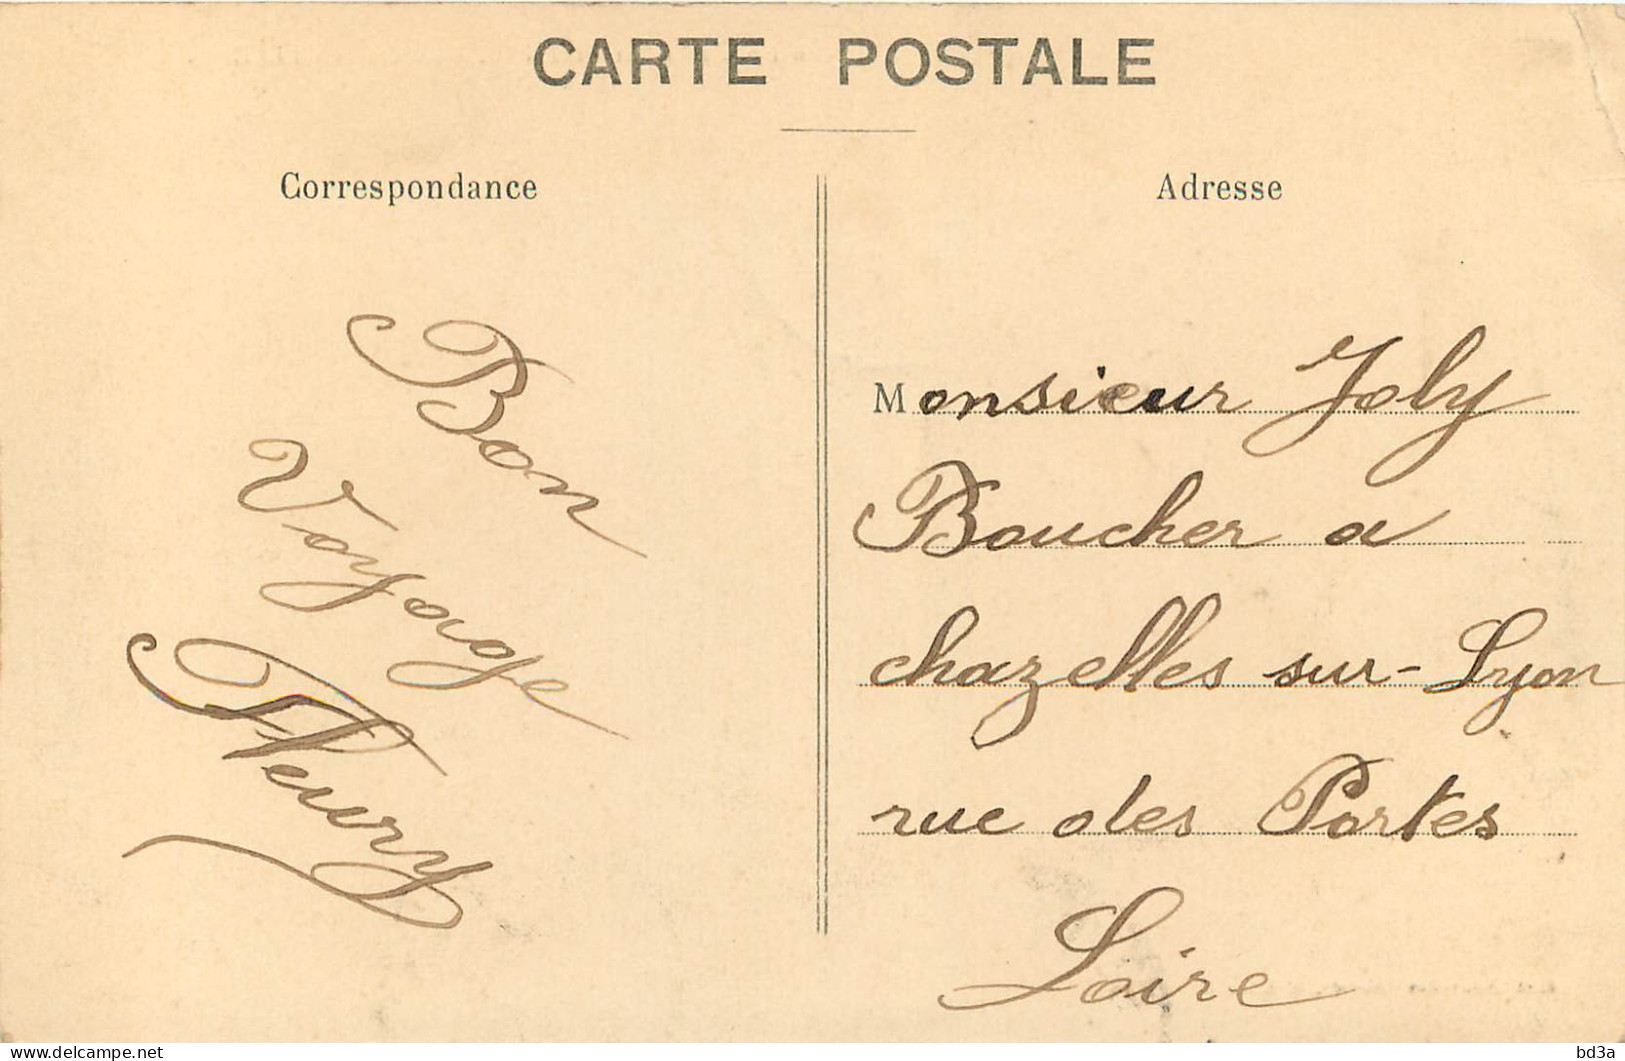 CARTE POSTALE
Correspondance
Bon
Voyage
Fleury
Adresse
Monsieur Joly
Boucher a
chazelles sur-Lyon
rue des Portes
Loire
https://www.delcampe.net
bd3a